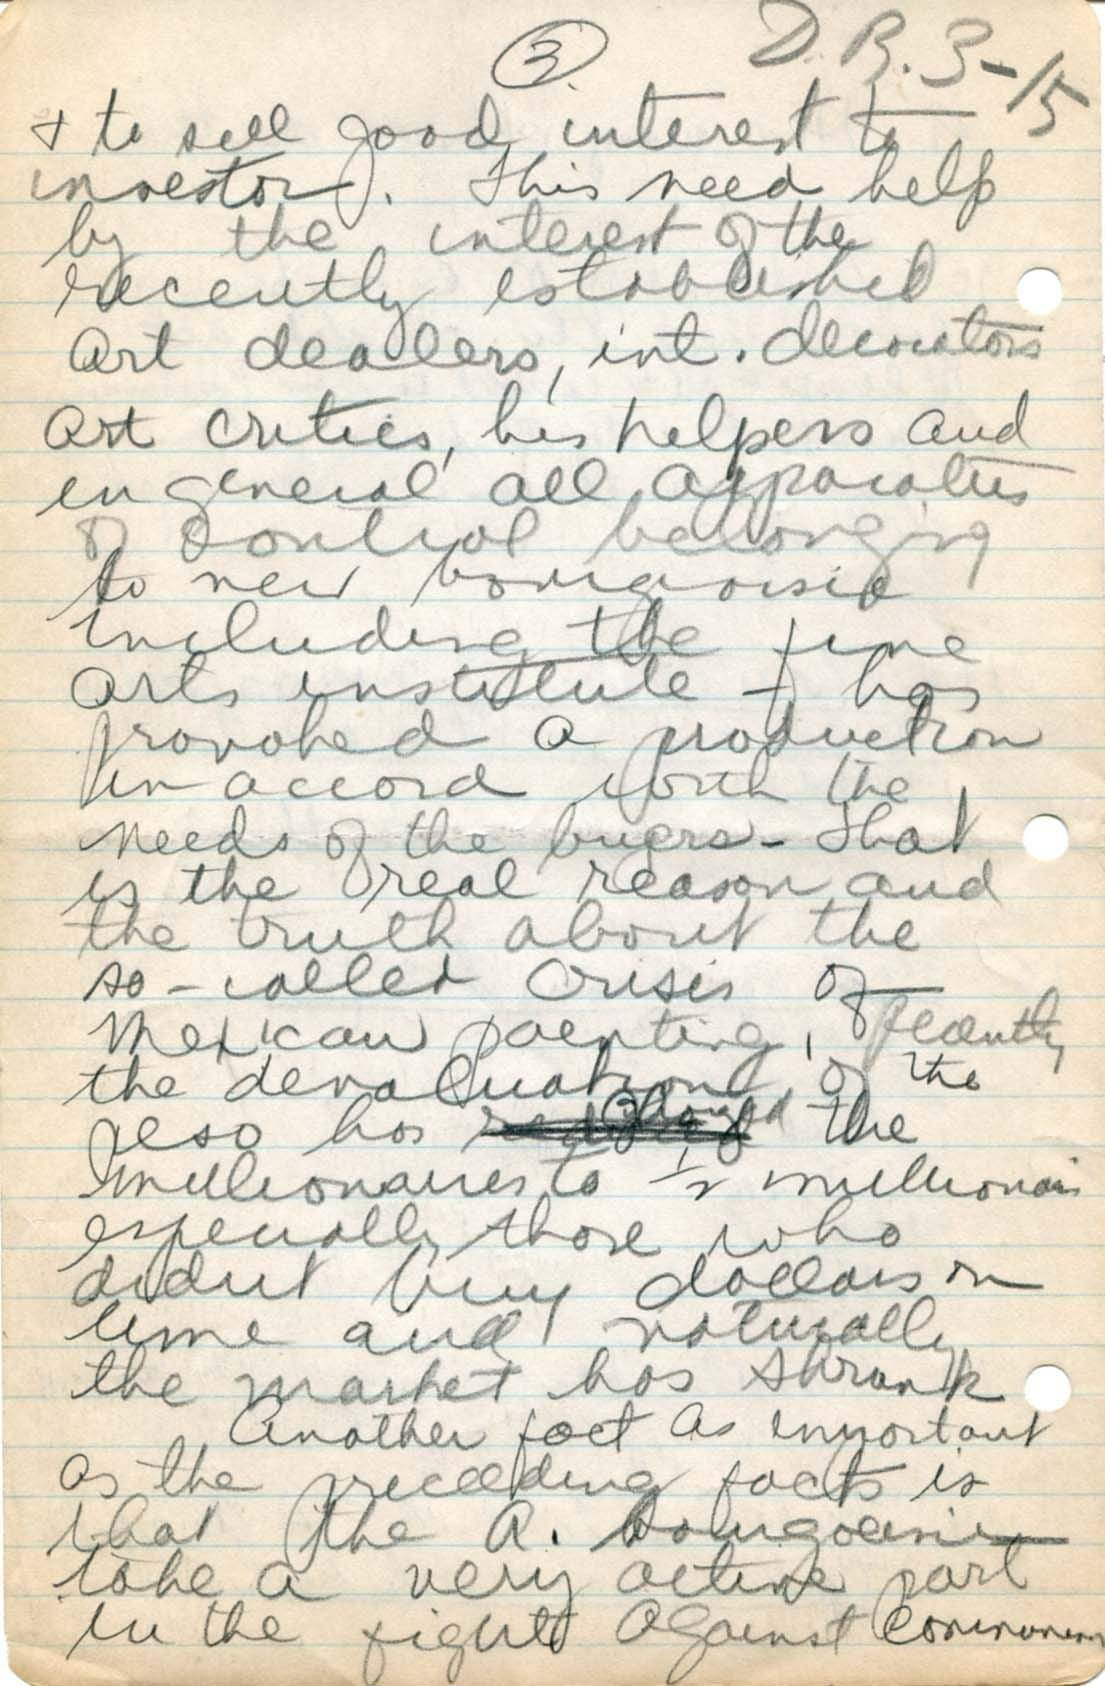 3.
D.R. 3-15
+ to sell good interest to
investor). This need help
by the interest of the
recently established
art dealers, int. decorators
art critics, his helpers and
in general all apparatus
of control belonging
to new bourgoisie
including the fine
arts institute + has
provoked a production
in accord with the
needs of the buyers - that
is the real reason and
the truth about the
so-called crisis of
Mexican painting, recently
the devaluation of the
peso has changed the
millionaires to ½ millionairs
especially those who
didnt buy dollars on
time and naturally
the market has shrunk
Another fact as important
as the preceeding facts is
that the A. bourgoisie
take a very active part
in the fight against communism